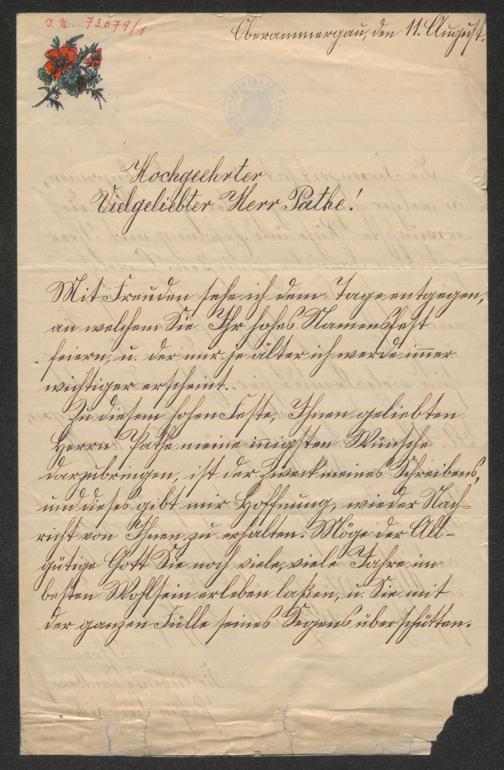 I. N. 73079/1
Oberammergau, den 11. August.
Hochgeehrter
Vielgeliebter Herr Pathe!
Mit Freuden sehe ich dem Tage entgegen,
an welchem Sie Ihr hohes Namensfest
feiern, u. der mir je älter ich werde immer
wichtiger erscheint.
Zu diesem hohen Feste, Ihnen geliebten
Herrn Pathe meine innigsten Wünsche
darzubringen, ist der Zweck meines Schreibens,
und dieses gibt mir Hoffnung, wieder Nach-
richt von Ihnen zu erhalten. Möge der All-
gütige Gott Sie noch viele, viele Jahre im
besten Wohlsein erleben laßen, u. Sie mit
der ganzen Fülle seines Segens überschütten.